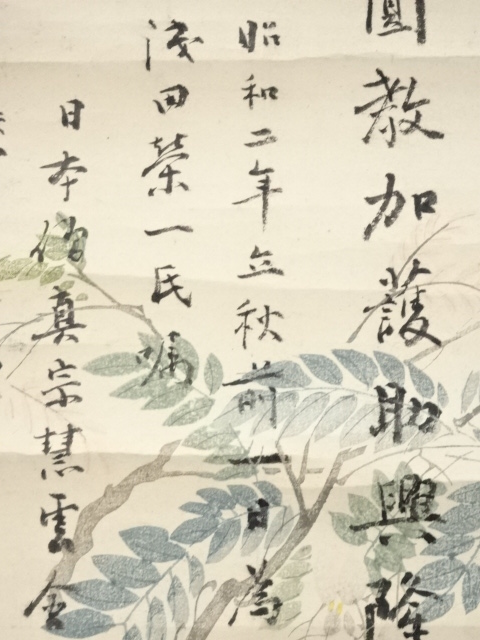 圓教加護助興隆
昭和二年立秋前一日為
淺田榮一氏嘱
日本 真宗慧雲